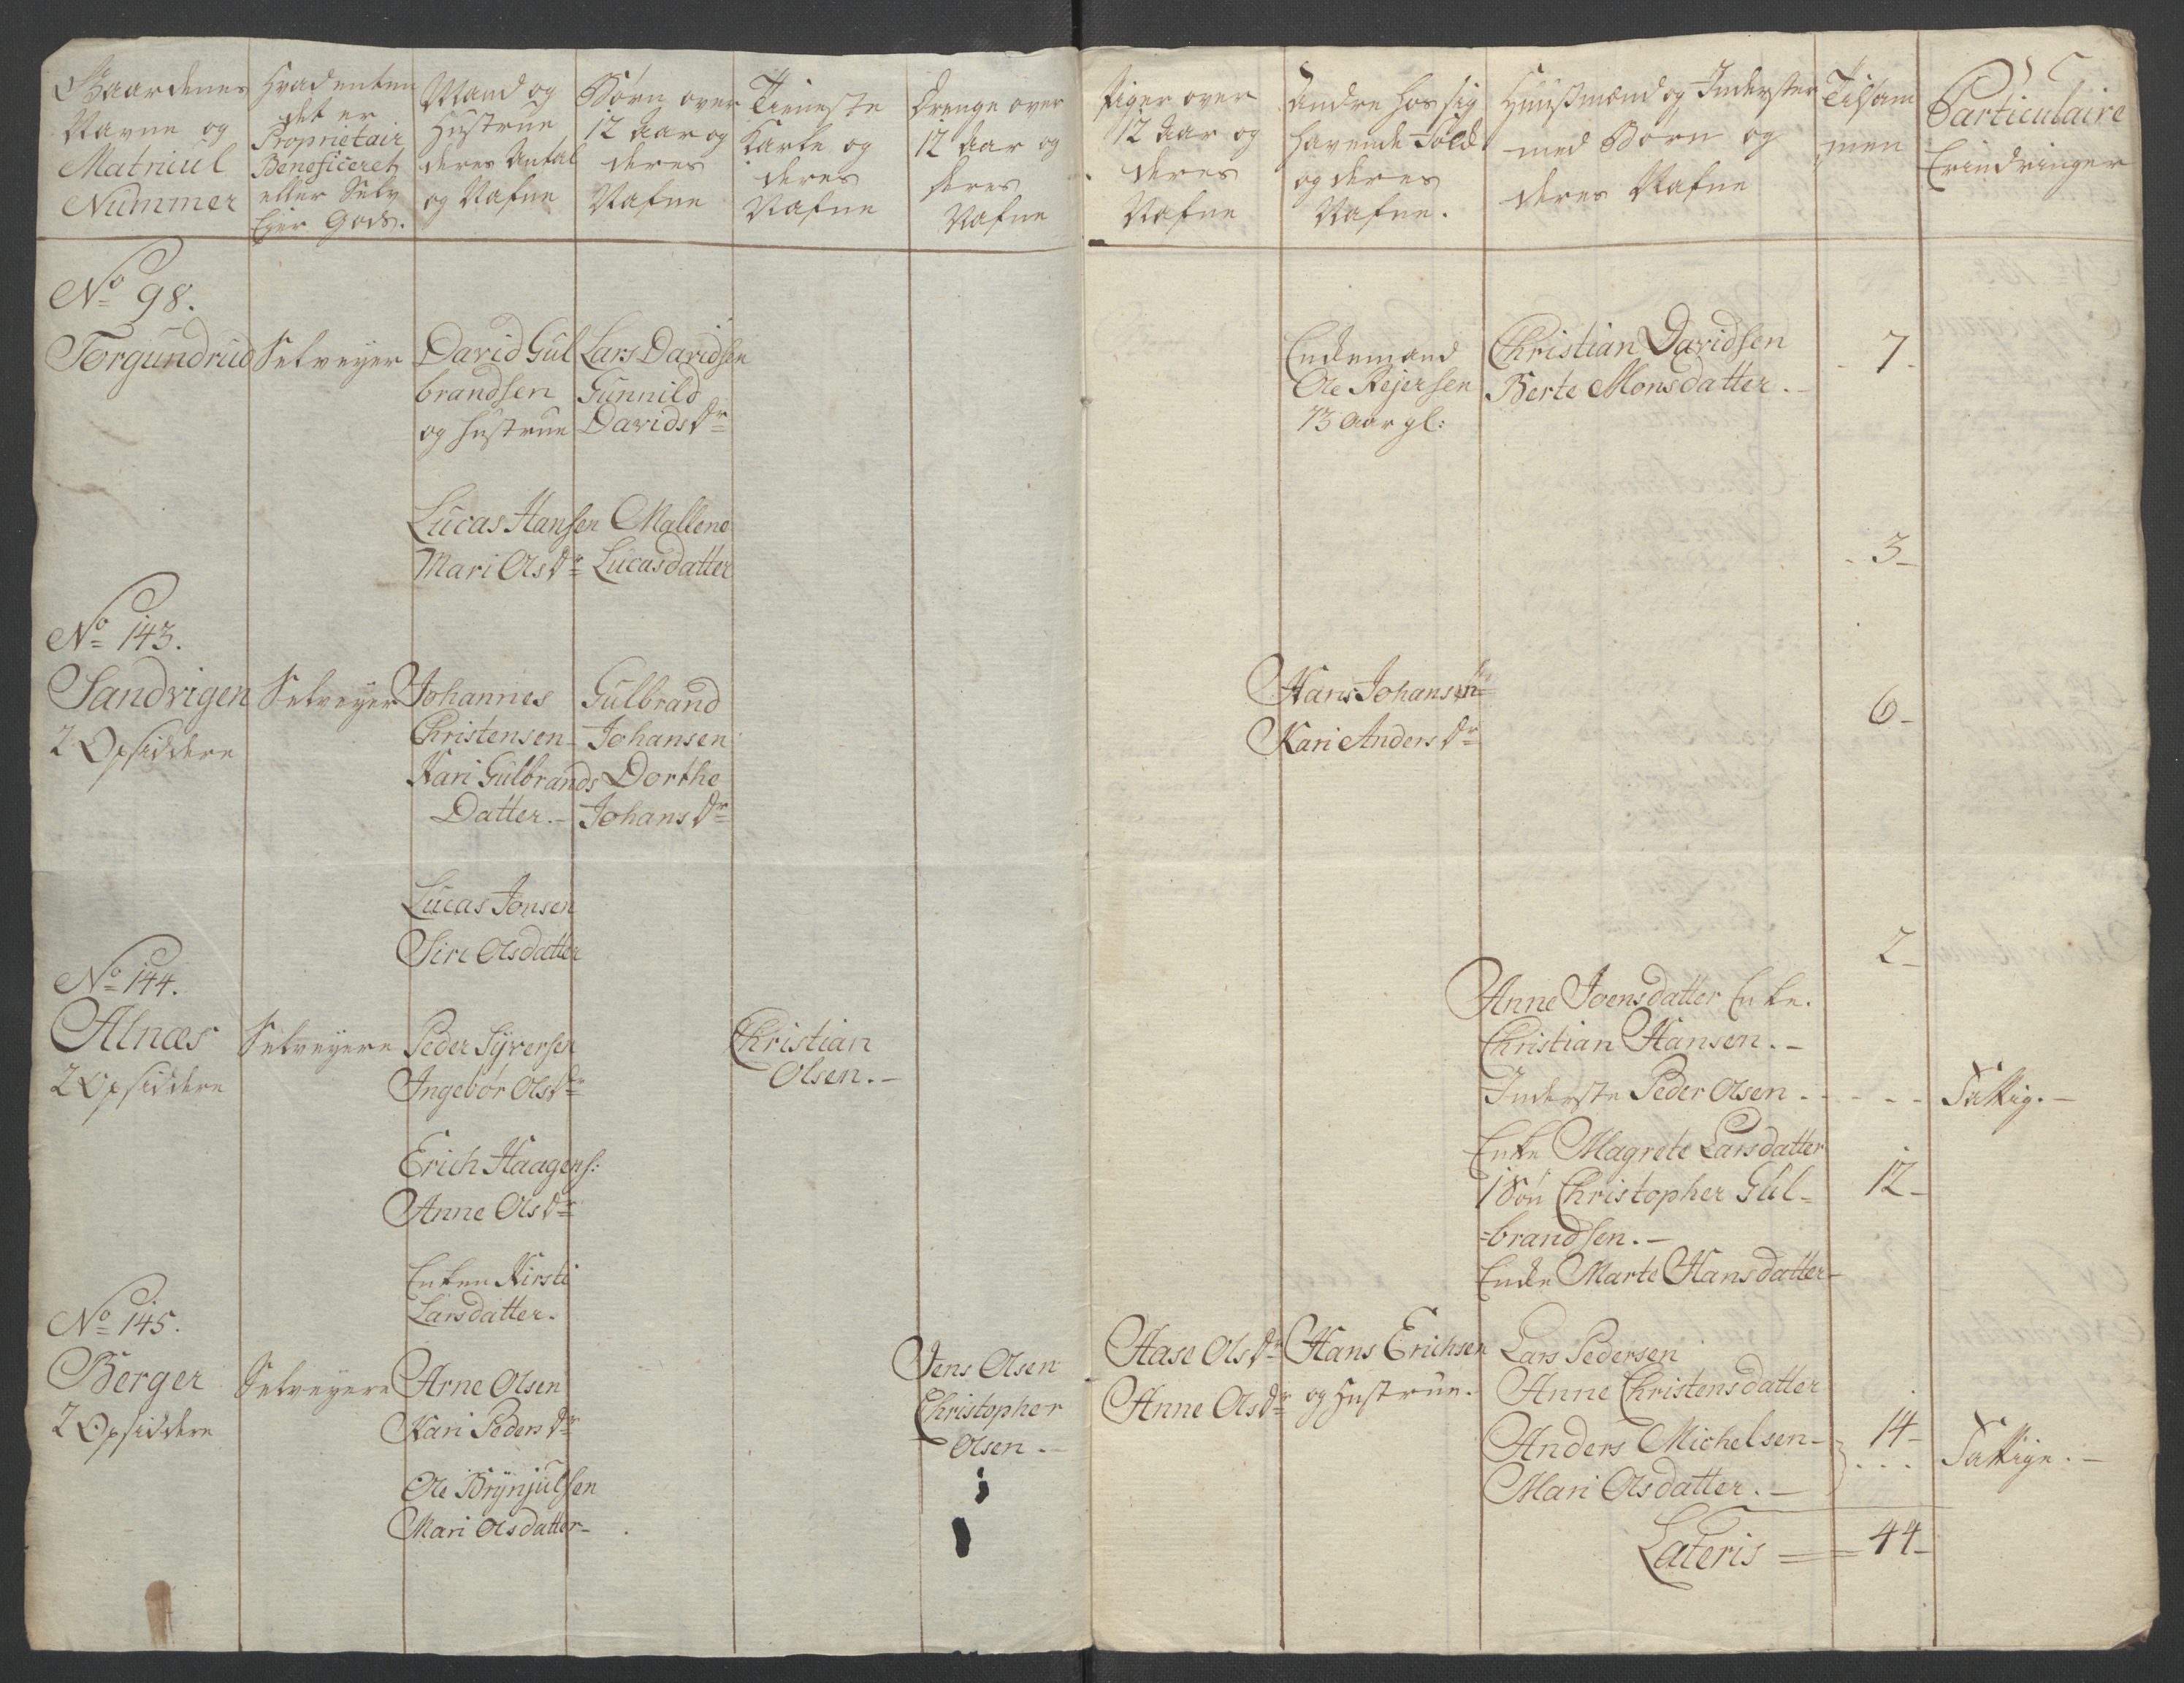 Gaardenes
Navne og
Matricul
Nummer
Hvadenten
det er
Proprietair
Beneficeret
eller Selv
Ejer Gods.
Mand og
Hustrue
deres Antal
og Nafne
Børn over
12 Aar og
deres
Nafne
Tieneste
Karle og
deres
Nafne
Drenge over
12 Aar og
deres
Nafne
Piger over
12 Aar og
deres
Nafne
Andre hos sig
havende Folk
og deres
Nafne.
Huusmænd og Inderster
med Børn og
deres Nafne
Tilsam
men
Particulaire
Erindringer
No 98.
Torgundrud
Selveyer
David Gul
brandsen
og Hustrue
Lars Davidsen
Gunnild
Davids Dr
Ole Rejersen
73 Aar gl:
Christian Davidsen
Berte Monsdatter.
7
Lucas Hansen
Mari Ols Dr
Mallene
Lucasdatter
3
No 143.
Sandvigen
2 Opsiddere
Selveyer
Johannes
Christensen
Kari Gulbrands
Datter.
Gulbrand
Johansen
Dorthe
Johans Dr
Hans Johansen
Kari Anders Dr
6
Lucas Jonsen
Siri Olsdatter
2
No 144.
Alnæs
2 Opsiddere
Selveyere
Peder Syversen
Ingebor Ols Dr
Christian
Olsen.
Anne Joensdatter Enke.
Christian Hansen.
Inderste Peder Olsen
Fattig.
Erich Haagens:
Anne Ols Dr
Enke Magrete Larsdatter
1 Søn Christopher Gul-
brandsen.
12
Enken Kirsti
Larsdatter.
Enke Marte Hansdatter
No 145.
Berger
2 Opsiddere
Selveyere
Arne Olsen
Kari Peders Dr
Jens Olsen
Christopher
Olsen.
Aase Ols Dr
Anne Ols Dr
Hans Erichsen
og Hustrue.
Lars Pedersen
Anne Christensdatter
Anders Michelsen
Mari Olsdatter.
14
Fattige.
Ole Brynjulsen
Mari Olsdatter
Lateris
44